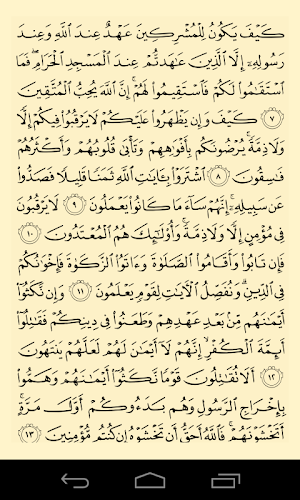 كَيْفَ يَكُونُ لِلْمُشْرِكِينَ عَهْدٌ عِندَ ٱللَّهِ وَعِندَ
رَسُولِهِۦٓ إِلَّا ٱلَّذِينَ عَٰهَدتُّمْ عِندَ ٱلْمَسْجِدِ ٱلْحَرَامِ ۖ فَمَا
ٱسْتَقَٰمُوا۟ لَكُمْ فَٱسْتَقِيمُوا۟ لَهُمْ ۚ إِنَّ ٱللَّهَ يُحِبُّ ٱلْمُتَّقِينَ
٧ كَيْفَ وَإِن يَظْهَرُوا۟ عَلَيْكُمْ لَا يَرْقُبُوا۟ فِيكُمْ إِلًّا
وَلَا ذِمَّةً ۚ يُرْضُونَكُم بِأَفْوَٰهِهِمْ وَتَأْبَىٰ قُلُوبُهُمْ وَأَكْثَرُهُمْ
فَٰسِقُونَ ٨ ٱشْتَرَوْا۟ بِـَٔايَٰتِ ٱللَّهِ ثَمَنًا قَلِيلًا فَصَدُّوا۟
عَن سَبِيلِهِۦٓ ۚ إِنَّهُمْ سَآءَ مَا كَانُوا۟ يَعْمَلُونَ ٩ لَا يَرْقُبُونَ
فِى مُؤْمِنٍ إِلًّا وَلَا ذِمَّةً ۚ وَأُو۟لَٰٓئِكَ هُمُ ٱلْمُعْتَدُونَ ١٠
فَإِن تَابُوا۟ وَأَقَامُوا۟ ٱلصَّلَوٰةَ وَءَاتَوُا۟ ٱلزَّكَوٰةَ فَإِخْوَٰنُكُمْ
فِى ٱلدِّينِ ۗ وَنُفَصِّلُ ٱلْـَٔايَٰتِ لِقَوْمٍ يَعْلَمُونَ ١١ وَإِن نَّكَثُوٓا۟
أَيْمَٰنَهُم مِّنۢ بَعْدِ عَهْدِهِمْ وَطَعَنُوا۟ فِى دِينِكُمْ فَقَٰتِلُوٓا۟
أَئِمَّةَ ٱلْكُفْرِ ۙ إِنَّهُمْ لَآ أَيْمَٰنَ لَهُمْ لَعَلَّهُمْ يَنتَهُونَ
١٢ أَلَا تُقَٰتِلُونَ قَوْمًا نَّكَثُوٓا۟ أَيْمَٰنَهُمْ وَهَمُّوا۟
بِإِخْرَاجِ ٱلرَّسُولِ وَهُم بَدَءُوكُمْ أَوَّلَ مَرَّةٍ ۚ
أَتَخْشَوْنَهُمْ ۚ فَٱللَّهُ أَحَقُّ أَن تَخْشَوْهُ إِن كُنتُم مُّؤْمِنِينَ ١٣